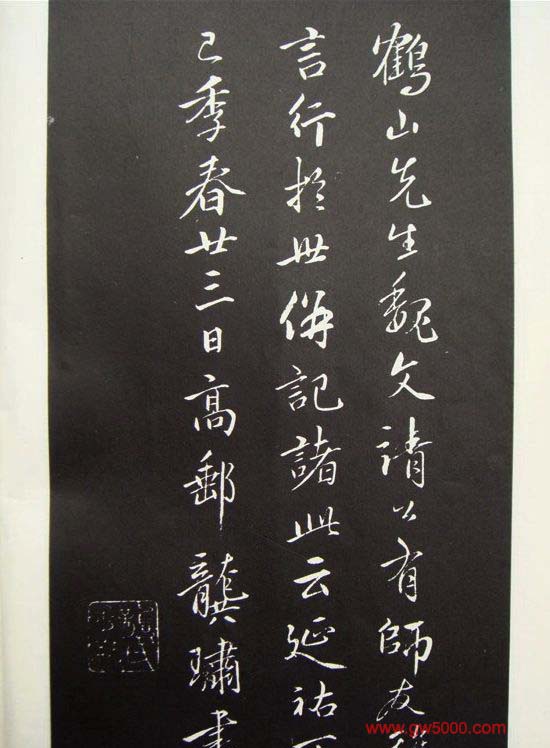 鶴山先生魏文靖公有師友
言行於世併記諸此云延祐
巳季春廿三日高郵龔璛書
www.gw5000.com